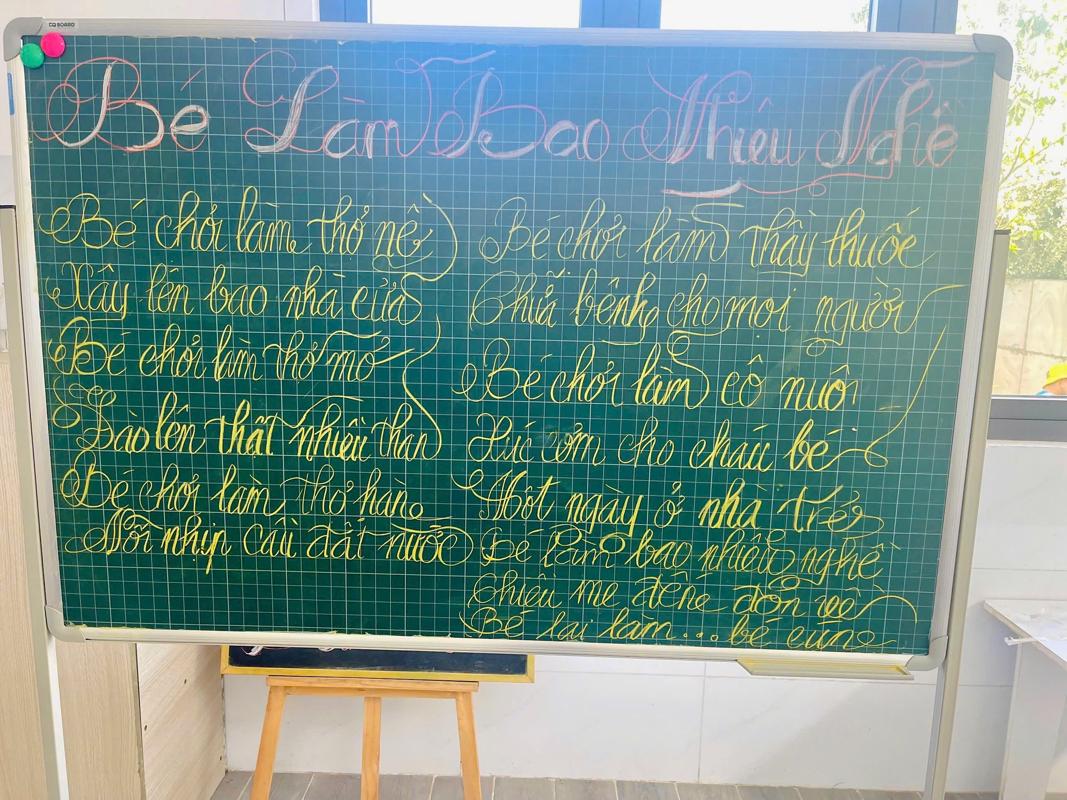 CQ BOARD
Bé Làm Bao Nhiêu Nghề
Bé chơi làm thợ nề
Xây lên bao nhà cửa
Bé chơi làm thợ mỏ
Đào lên thật nhiều than
Bé chơi làm thợ hàn
Nối nhịp cầu đất nước
Bé chơi làm thầy thuốc
Chữa bệnh cho mọi người
Bé chơi làm cô nuôi
Xúc cơm cho cháu bé
Một ngày ở nhà trẻ
Bé làm bao nhiêu nghề
Chiều mẹ đến đón về
Bé lại làm... bé cưng